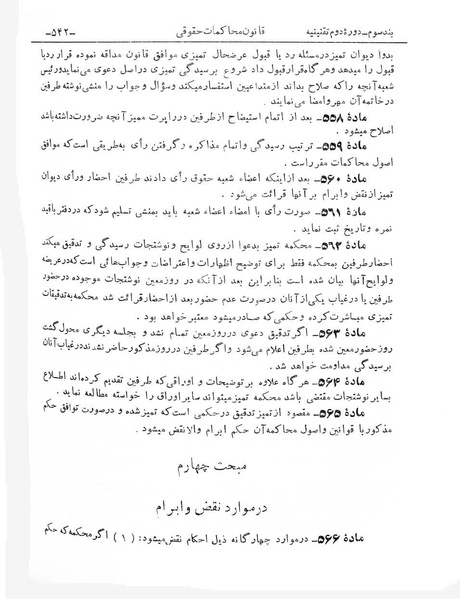 بند سوم - دورهٔ دوم تقنینیه قانون محاکمات حقوقی -۵۴۲-
بدوا دیوان تمیز در مسئله رد یا قبول عرضحال تمیزی موافق قانون مداقه نموده قرار رد یا
قبول را میدهد و هرگاه قرار قبول داد شروع برسیدگی تمیزی در اصل دعوی مینماید ورئیس
شعبه آنچه را که صلاح بداند از متداعیین استفسار میکند وسؤال وجواب را منشی نوشته طرفین
در خاتمه آن مهر وامضا می نمایند .
مادهٔ ۵۵۸ـ بعد از اتمام استیضاح از طرفین در راپرت ممیز آنچه ضرورت داشته باشد
اصلاح میشود .
مادهٔ ۵۵۹ـ ترتیب رسیدگی واتمام مذاکره و گرفتن رأی به طریقی است که موافق
اصول محاکمات مقرر است .
مادهٔ ۵۶۰ـ بعد از اینکه اعضاء شعبه حقوق رأی دادند طرفین احضار ورأی دیوان
تمیز از نقض و ابرام بر آنها قرائت می شود .
مادهٔ ۵۶۱ـ صورت رأی با امضاء اعضاء شعبه باید بمنشی تسلیم شود که در دفتر باقید
نمره و تاریخ ثبت نماید .
مادهٔ ۵۶۲ـ محکمه تمیز بدعوا از روی لوایح و نوشتجات رسیدگی و تدقیق میکند
احضار طرفین بمحکمه فقط برای توضیح اظهارات واعتراضات وجوابهائی است که در عریضه
ولوایح آنها بیان شده است بنابراین بعد از آنکه در روز معین نوشتجات موجوده در حضور
طرفین یا در غیاب یکی از آنان در صورت عدم حضور بعد از احضار قرائت شد محکمه به تدقیقات
تمیزی مباشرت کرده وحکمی که صادر میشود معتبر خواهد بود .
مادهٔ ۵۶۳ـ اگر تدقیق دعوی در روز معین تمام نشد و بجلسه دیگری محول گشت
روز حضور معین شده بطرفین اعلام می شود واگر طرفین در روز مذکور حاضر نشدند در غیاب آنان
برسیدگی مداومت خواهد شد .
مادهٔ ۵۶۴ـ هر گاه علاوه بر توضیحات و اوراقی که طرفین تقدیم کرده اند اطلاع
بسایر نوشتجات مقتضی باشد محکمه تمیز میتواند سایر اوراق را خواسته مطالعه نماید .
مادهٔ ۵۶۵ـ مقصود از تمیز تدقیق در حکمی است که تمیز شده و در صورت توافق حکم
مذکور با قوانین واصول محاکمه آن حکم ابرام والا نقض میشود .
مبحث چهارم
در موارد نقض و ابرام
مادهٔ ۵۶۶ـ در موارد چهارگانه ذیل احکام نقض میشود: (۱) اگر محکمه که حکم